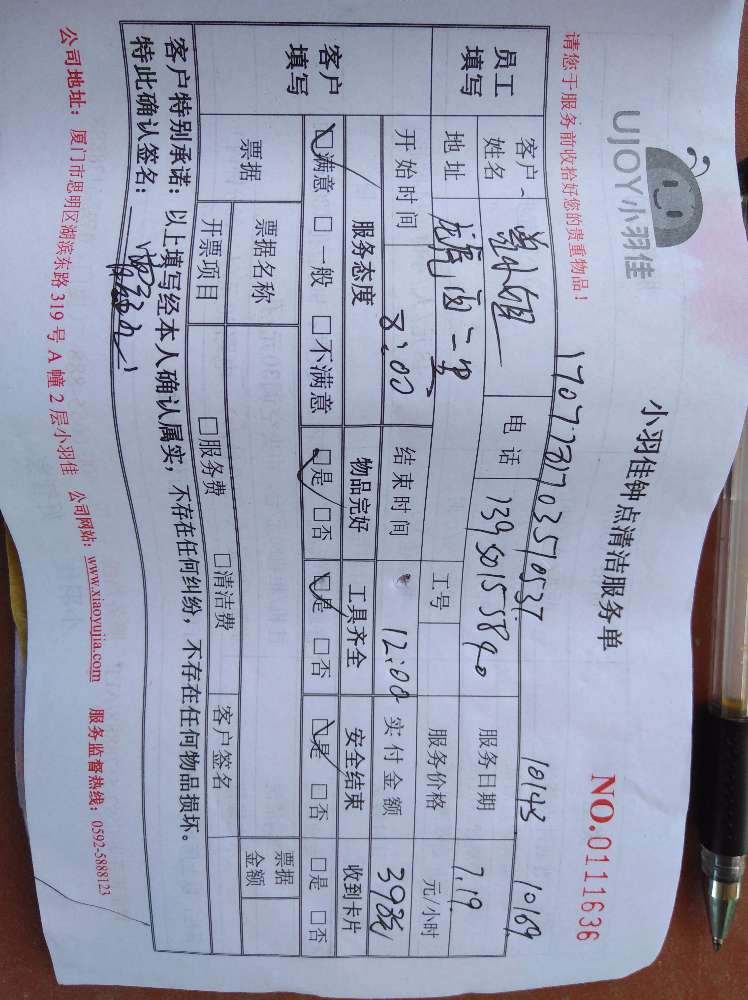 UJOY小羽佳
小羽佳钟点清洁服务单
NO.0111636
请您于服务前收拾好您的贵重物品！
10143 10169
员工填写
客户姓名 小姐 电话 13950155840 服务日期 7.19
地址 龙虎南二里 工号 服务价格 元/小时
开始时间 8:00 结束时间 12:00 实付金额 398元
客户填写
服务态度 物品完好 工具齐全 安全结束 收到卡片
☑满意 □一般 □不满意 ☑是 □否 ☑是 □否 ☑是 □否 □是 □否
票据 票据名称 票据金额
开票项目 □服务费 □清洁费 客户签名
客户特别承诺：以上填写经本人确认属实，不存在任何纠纷，不存在任何物品损坏。
特此确认签名：
公司地址：厦门市思明区湖滨东路 319 号 A 幢 2 层小羽佳 公司网站：www.xiaoyujia.com 服务监督热线：0592-5888123